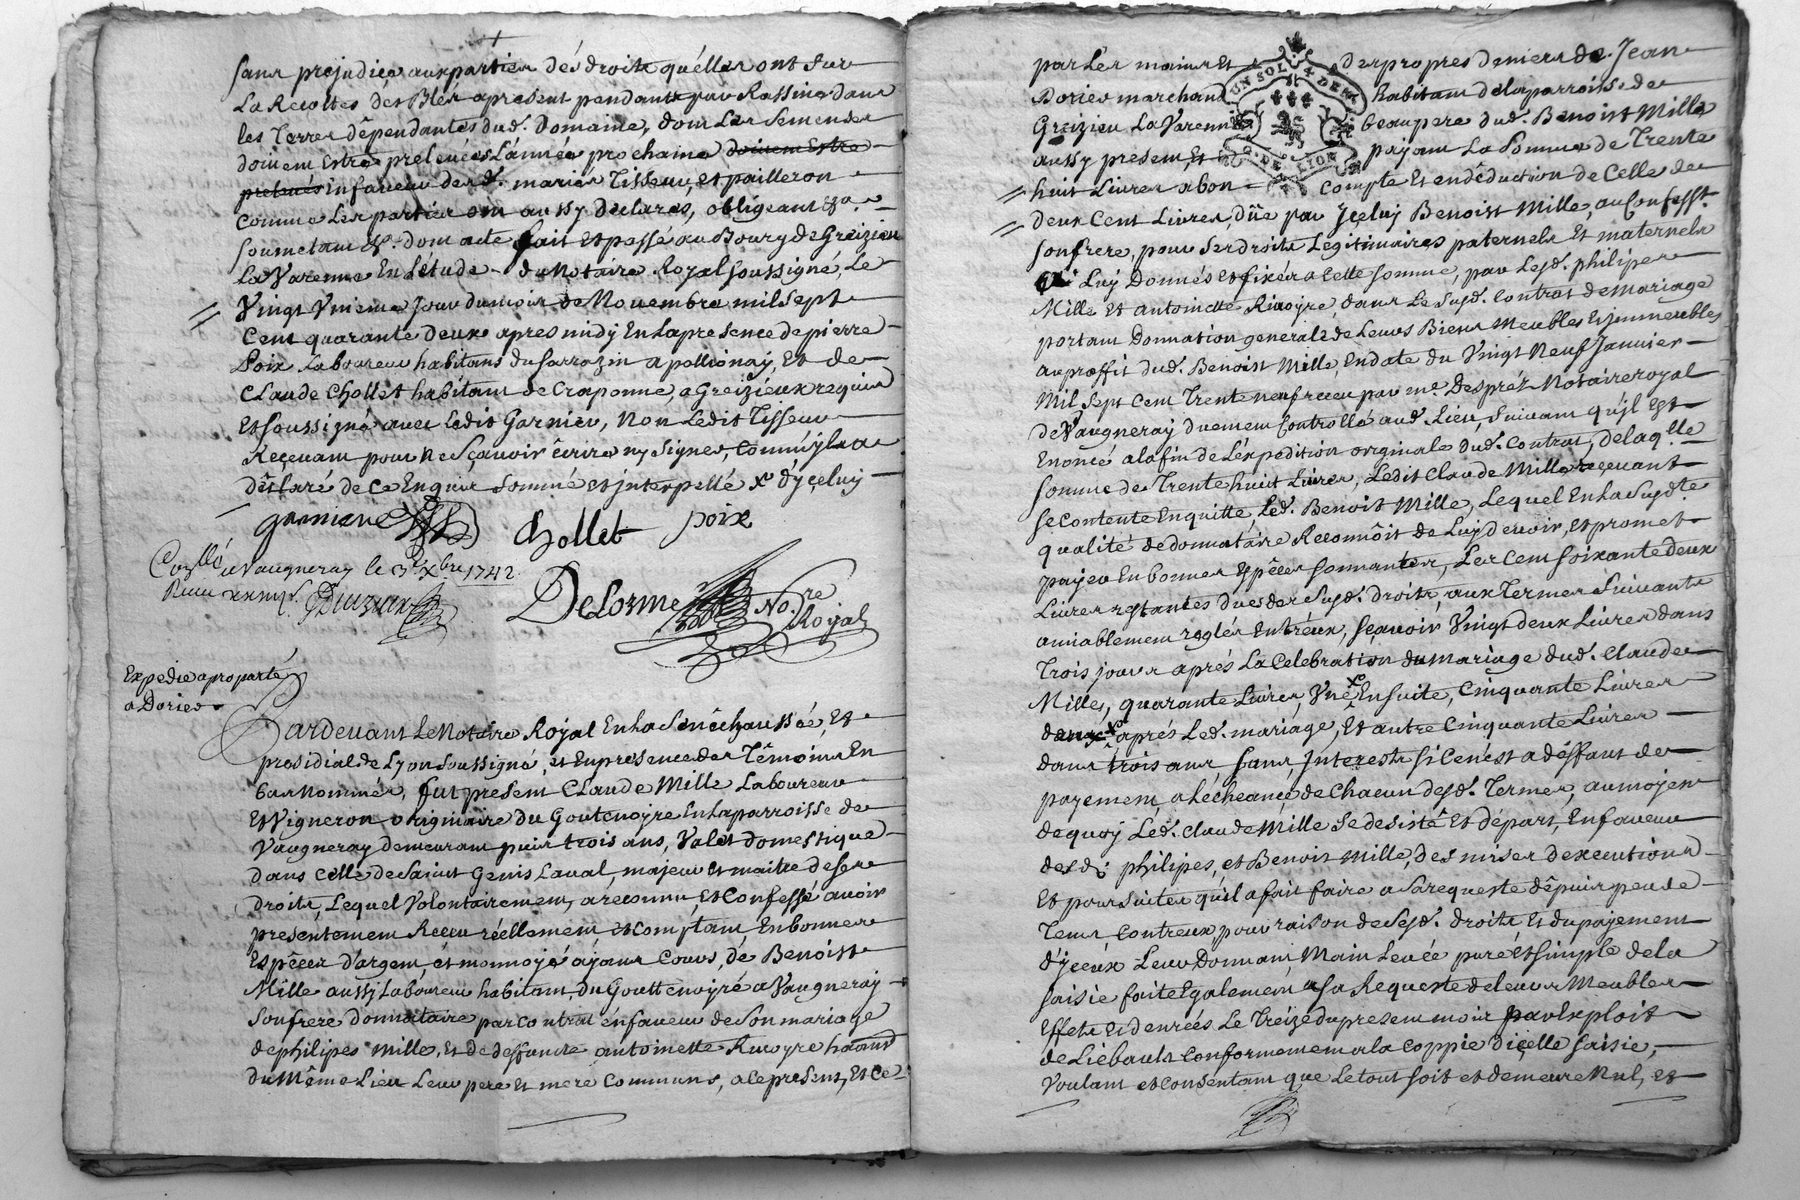 sans prejudice aux parties dés droits qu'élles ont sur
La Recoltes dés Blés apresent pendants par Rassines dans
les Terres dêpendantes dud. Domaine, dont Les Semences
doivent Estre prelevées L'année prochaine doivent Estre
prelevés En faveur desd. mariés Tisseur, et pailleron
comme Les parties ont aussy declarés, obligeant &a.
soumetant &. dont acte fait Et passé au Bourg de Greizieu
La Varenne En L'étude du Notaire Royal soussigné, Le
Vingt Vnieme Jour du mois de Novembre mil sept
Cent quarante deux apres midy En La presence de pierre
Poix Laboureur habitans du Sarrazin a pollionay, Et de
CLaude Chollet habitant de Craponne, a Greizieux requis
Et soussigné avec Ledit Garnier, Non Ledit Tisseur
Reçevant pour Ne sçavoir êcrire ny signer, comm'ýl a
dêclaré de ce Enquis sommé et interpellé x d'yçeluy
garnier Chollet poix
Con.llé a Vaugneray le 3e Xbre 1742
Delorme No.re Royal
Expedié a pro parté
a Dories
Pardevant Le Notaire Royal En La Senêchaussée, Et
presidial de Lyon soussigné, et En presence des Têmoins En
bas Nommés, fut present CLaude Mille Laboureur
Et Vigneron originaire du Goutenoyre En La parroisse de
Vaugneray demeurant puis trois ans, Valet domestique
dans celle de Saint Genis Laval, majeur et maitre de ses
droits, Lequel Volontairement, a reconnu, et Confessé avoir
presentement Receu réellement et comptant En bonnes
Espêces d'argent, et monnoyé ayant Cours, dé Benoist
Mille aussy Laboureur habitant du Gouttenoyré a Vaugneray
son frere donnataire par contrat en faveur de son mariage
de philipes Mille, Et de deffuncte antoinette Rivoyre
du Même Lieu Leur pere et mere communs, a ce present, Et ce
par Les mains Et des propres deniers de Jean
Dories marchand habitant de la parroisse de
Greizieu La Varenne beaupere dud. Benoist Mille
aussy present, Et payant La somme de Trente
huit Livres a bon compte Et en dêduction de Celle de
deux Cent Livres, dûe par Jceluy Benoist Mille, au Confess.t
son frere, pour ses droits Legitimaires paternels Et maternels
a Luy donnés et fixés a cette somme, par Lesd. philipes
Mille Et antoinette Rivoyre, dans Le susd. Contrat de Mariage
portant Donnation generale de Leurs Biens Meubles Et jmmeubles
au proffit dud. Benoist Mille, En date du Vingt Neuf Janvier
Mil sept Cent Trente neuf receu par me. Despréz Notaire royal
de Vaugneray duement Controllé aud. Lieu, suivant qu'jl Est
Enoncé a la fin de L'expedition originale dud. Contrat, de laq.lle
somme de Trente huit Livres, Ledit Claude Mille reçevant
se contente En quitte, Led. Benoist Mille, Lequel En La susd.te
qualité de donnataire Reconnôit de Luy devoir, et promet
payer En bonnes Espêces sonnantes, Les cent soixante deux
Livres restantes dues de susd. droits, aux Termes suivants
amiablement reglés Entr'eux, sçavoir Vingt deux Livres dans
Trois jours aprés La Celebration du mariage dud. Claude
Mille, quarante Livres, En suite, Cinquante Livres
aprés Led. mariage, Et autre Cinquante Livres
dans trois ans sans jnterests si Ce n'ést a déffaut de
payement a L'échéance de Chacun desd. Termes, au moyen
de quoy Led. Claude Mille se desistê Et dépars, En faveur
desd. philipes, et Benoist Mille, dés mises d'execution
Et poursuites qu'jl a fait faire a Sa requeste dêpuis peu de
Tems, contreux pour raison de sesd. droits Et du payement
d'jçeux Leur Donnant, Main Levée pure et simple de la
saisie faite également a sa Requeste de leurs Meubles
Effets Et denrées Le Treize du present mois par Exploit
de Liebaults conformement a la coppie d'içelle saisie,
Voulant et consentant que Le tout soit et demeure Nul, et